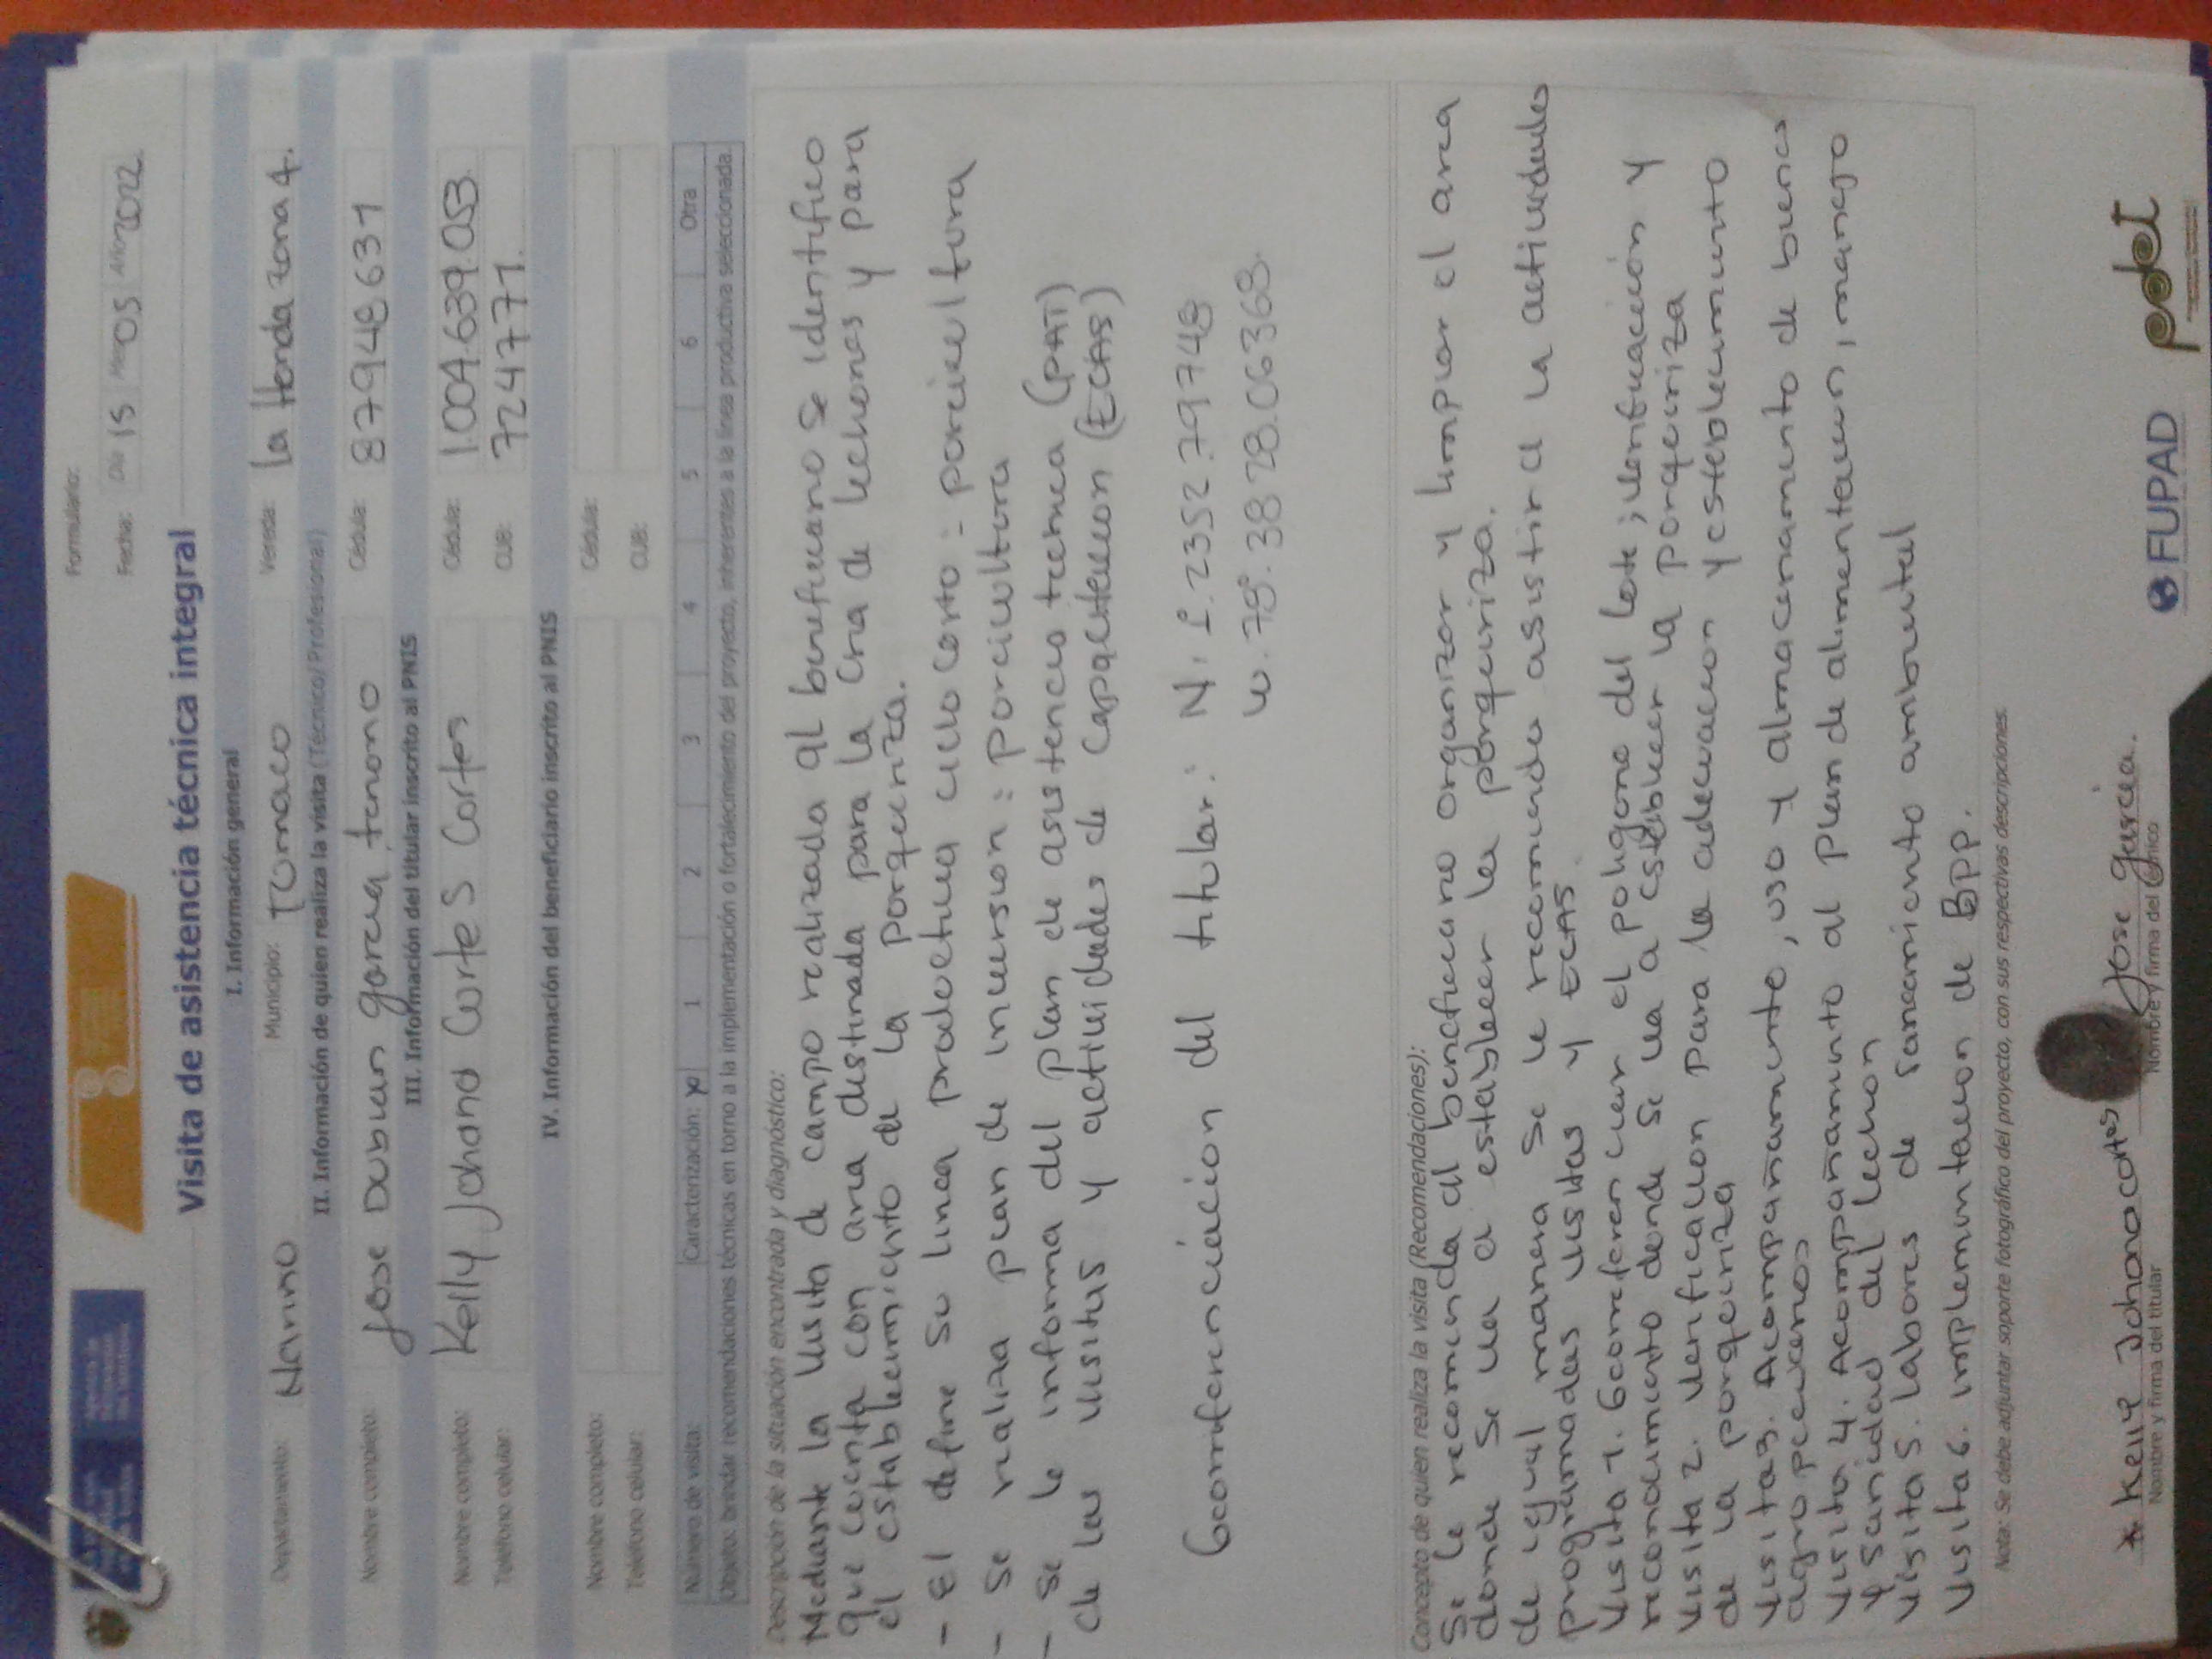 Formulario:
Fecha: Día 15 Mes 05 Año 2022
Visita de asistencia técnica integral
I. Información general
Departamento: Narino Municipio: TUmaco Vereda: la Honda zona 4.
II. Información de quien realiza la visita (Técnico/Profesional)
Nombre completo: Jose Dubian garcia tenorio Cédula: 87948631
III. Información del titular inscrito al PNIS
Nombre completo: Kelly Johana Cortes Cortes Cédula: 1.004.639.053.
Teléfono celular: CUB: 7247771.
IV. Información del beneficiario inscrito al PNIS
Nombre completo: Cédula:
Teléfono celular: CUB:
Número de visita: Caracterización: x 1 2 3 4 5 6 Otra
Objeto: brindar recomendaciones técnicas en torno a la implementación o fortalecimiento del proyecto, inherentes a la línea productiva seleccionada.
Descripción de la situación encontrada y diagnóstico:
Mediante la visita de campo realizada al beneficiario se identifico
que cuenta con area destinada para la cria de lechones y para
el establecimiento de la porqueriza.
- El define su linea productiva ciclo corto : porcicultura
- Se realiza plan de inversion : porcicultura
- Se le informa del plan de asistencia tecnica (PAT)
de las visitas y actividades de capacitacion (ECAS)
Georeferenciación del titular: N: 1.2352.79748
W. 78°.3828.06368.
Concepto de quien realiza la visita (Recomendaciones):
Se le recomienda al beneficiario organizar y limpiar el area
donde se va a establecer la porqueriza.
de igual manera se le recomienda asistir a la actividades
programadas visitas y ECAS.
Visita 1. Georeferenciar el poligono del lote ; verificación y
reconocimiento donde se va a establecer la porqueriza
Visita 2. Verificacion para la adecuacion y establecimiento
de la porqueriza
Visita3. Acompañamiento, uso y almacenamiento de buenas
agropecuarios
Visita 4. Acompañamiento al plan de alimentacion, manejo
y sanidad del lechon
Visita 5. labores de saneamiento ambiental
Visita 6. implementacion de BPP.
Nota: Se debe adjuntar soporte fotográfico del proyecto, con sus respectivas descripciones.
x. Kelly Johana cortes Jose garcia.
Nombre y firma del titular Nombre y firma del técnico
FUPAD pdet